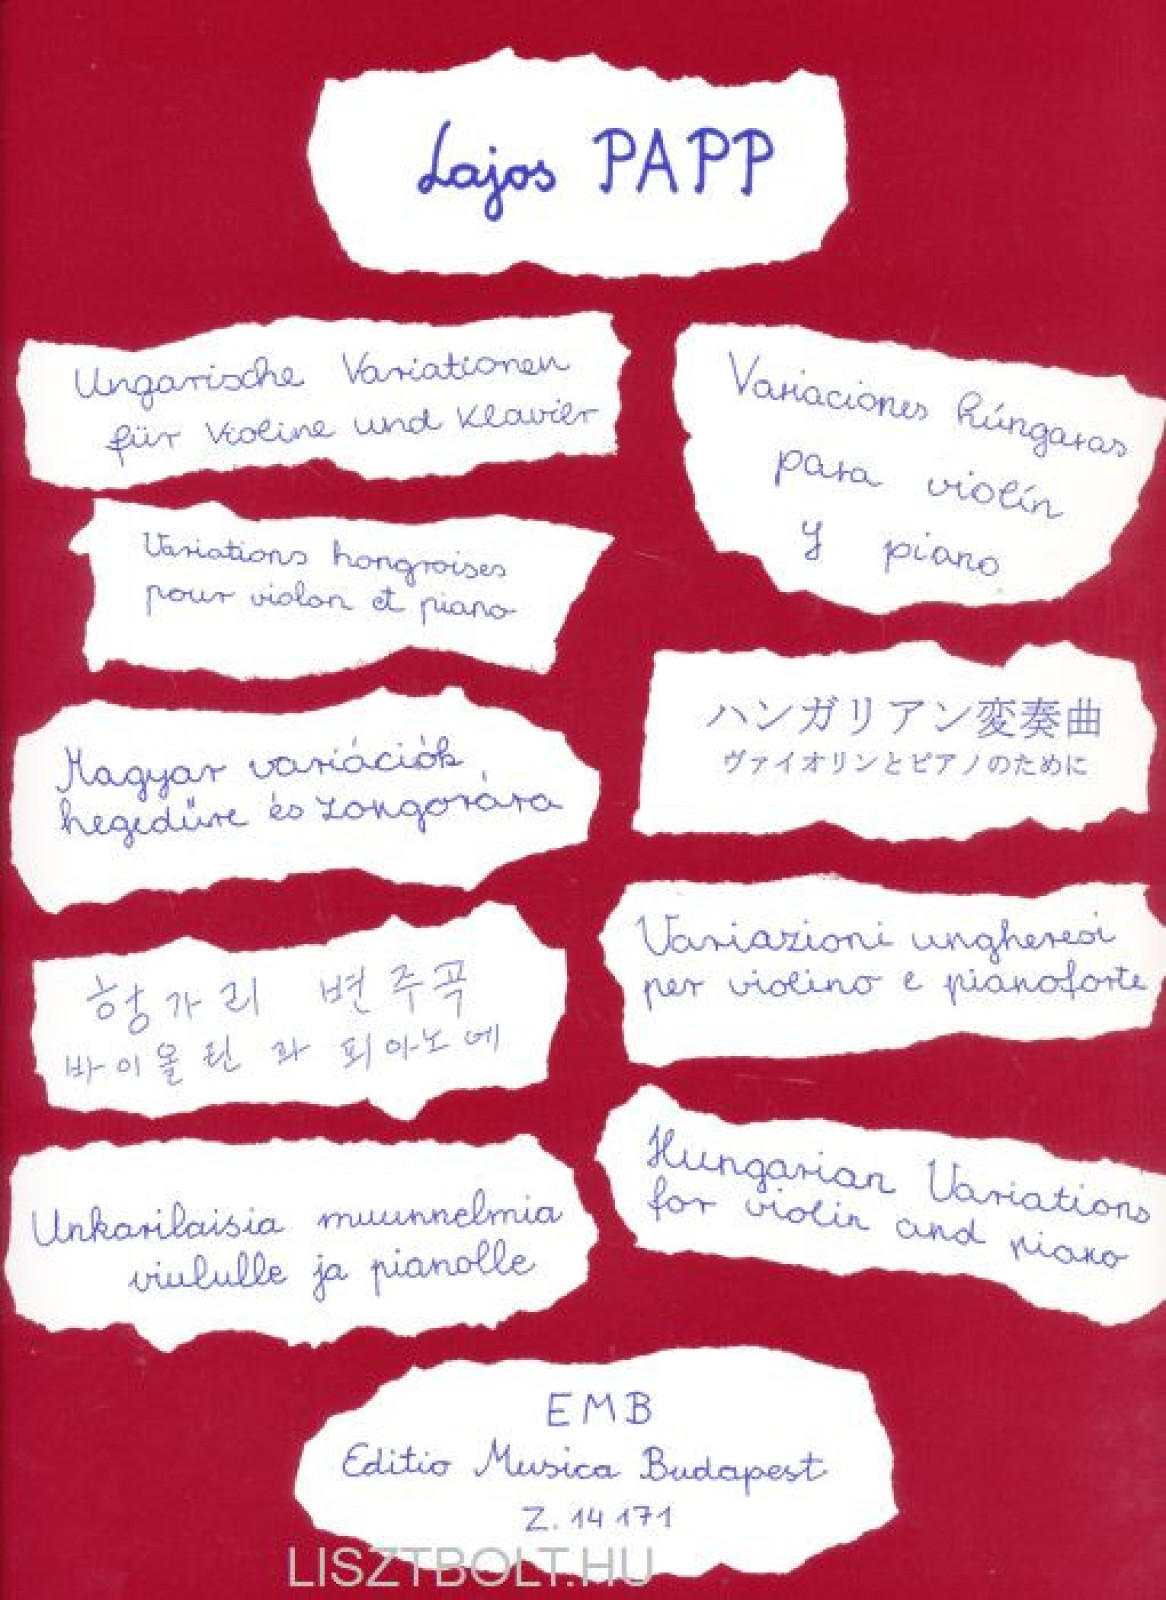 Lajos PAPP
Ungarische Variationen
für Violine und Klavier
Variaciones húngaras
para violín
y piano
Variations hongroises
pour violon et piano
ハンガリアン変奏曲
ヴァイオリンとピアノのために
Magyar variációk
hegedűre és zongorára
Variazioni ungheresi
per violino e pianoforte
헝가리 변주곡
바이올린과 피아노에
Hungarian Variations
for violin and piano
Unkarilaisia muunnelmia
viululle ja pianolle
EMB
Editio Musica Budapest
Z. 14 171
LISZTBOLT.HU